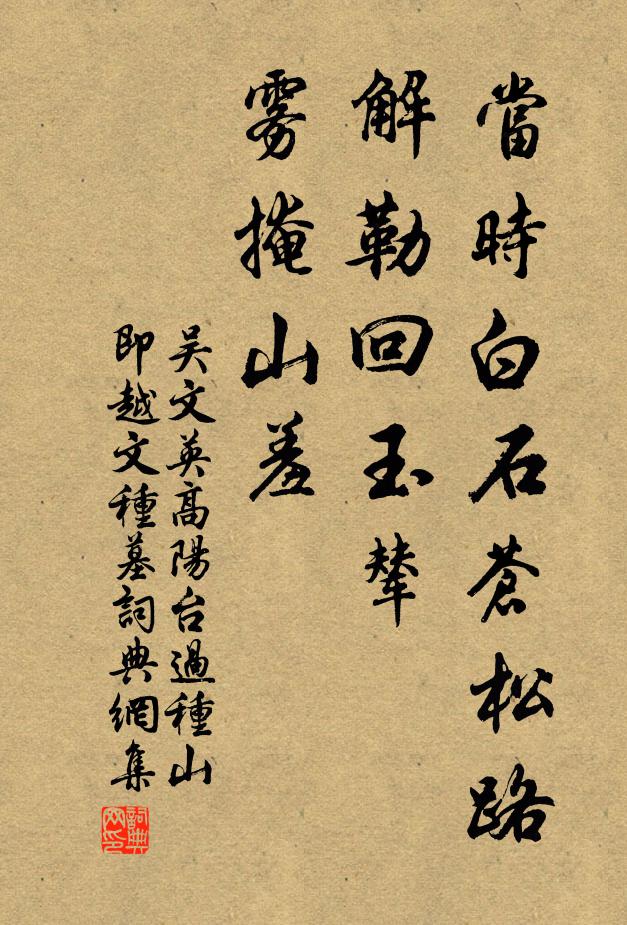 當時白石蒼松路
解勒回玉輦
雾掩山羞
吴文英高陽台過種山
即越文種墓詞典網集
詞典网印